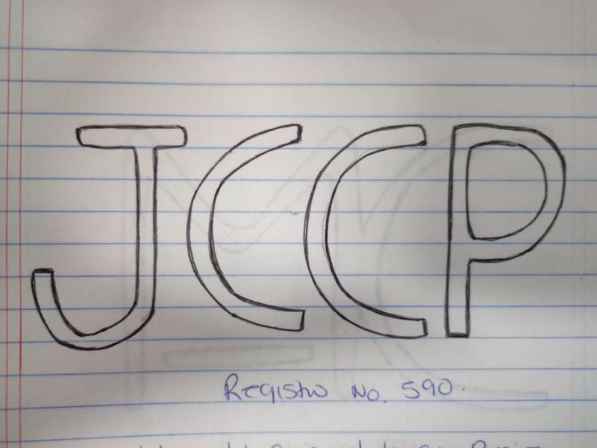 JCCP
Registro No. 590.